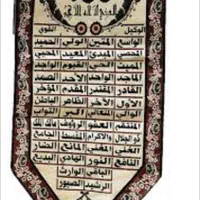 الوكيل القوي
الواسع المتين الولي الحميد
المحصي المبدئ المعيد المحيي
المميت الحي القيوم الواجد
الماجد الواحد الأحد الصمد
القادر المقتدر المقدم المؤخر
الأول الآخر الظاهر الباطن
الوالي المتعالي البر التواب
المنتقم العفو الرؤوف مالك الملك
ذو الجلال والإكرام المقسط الجامع
الغني المغني المانع الضار
النافع النور الهادي البديع
الباقي الوارث
الرشيد الصبور